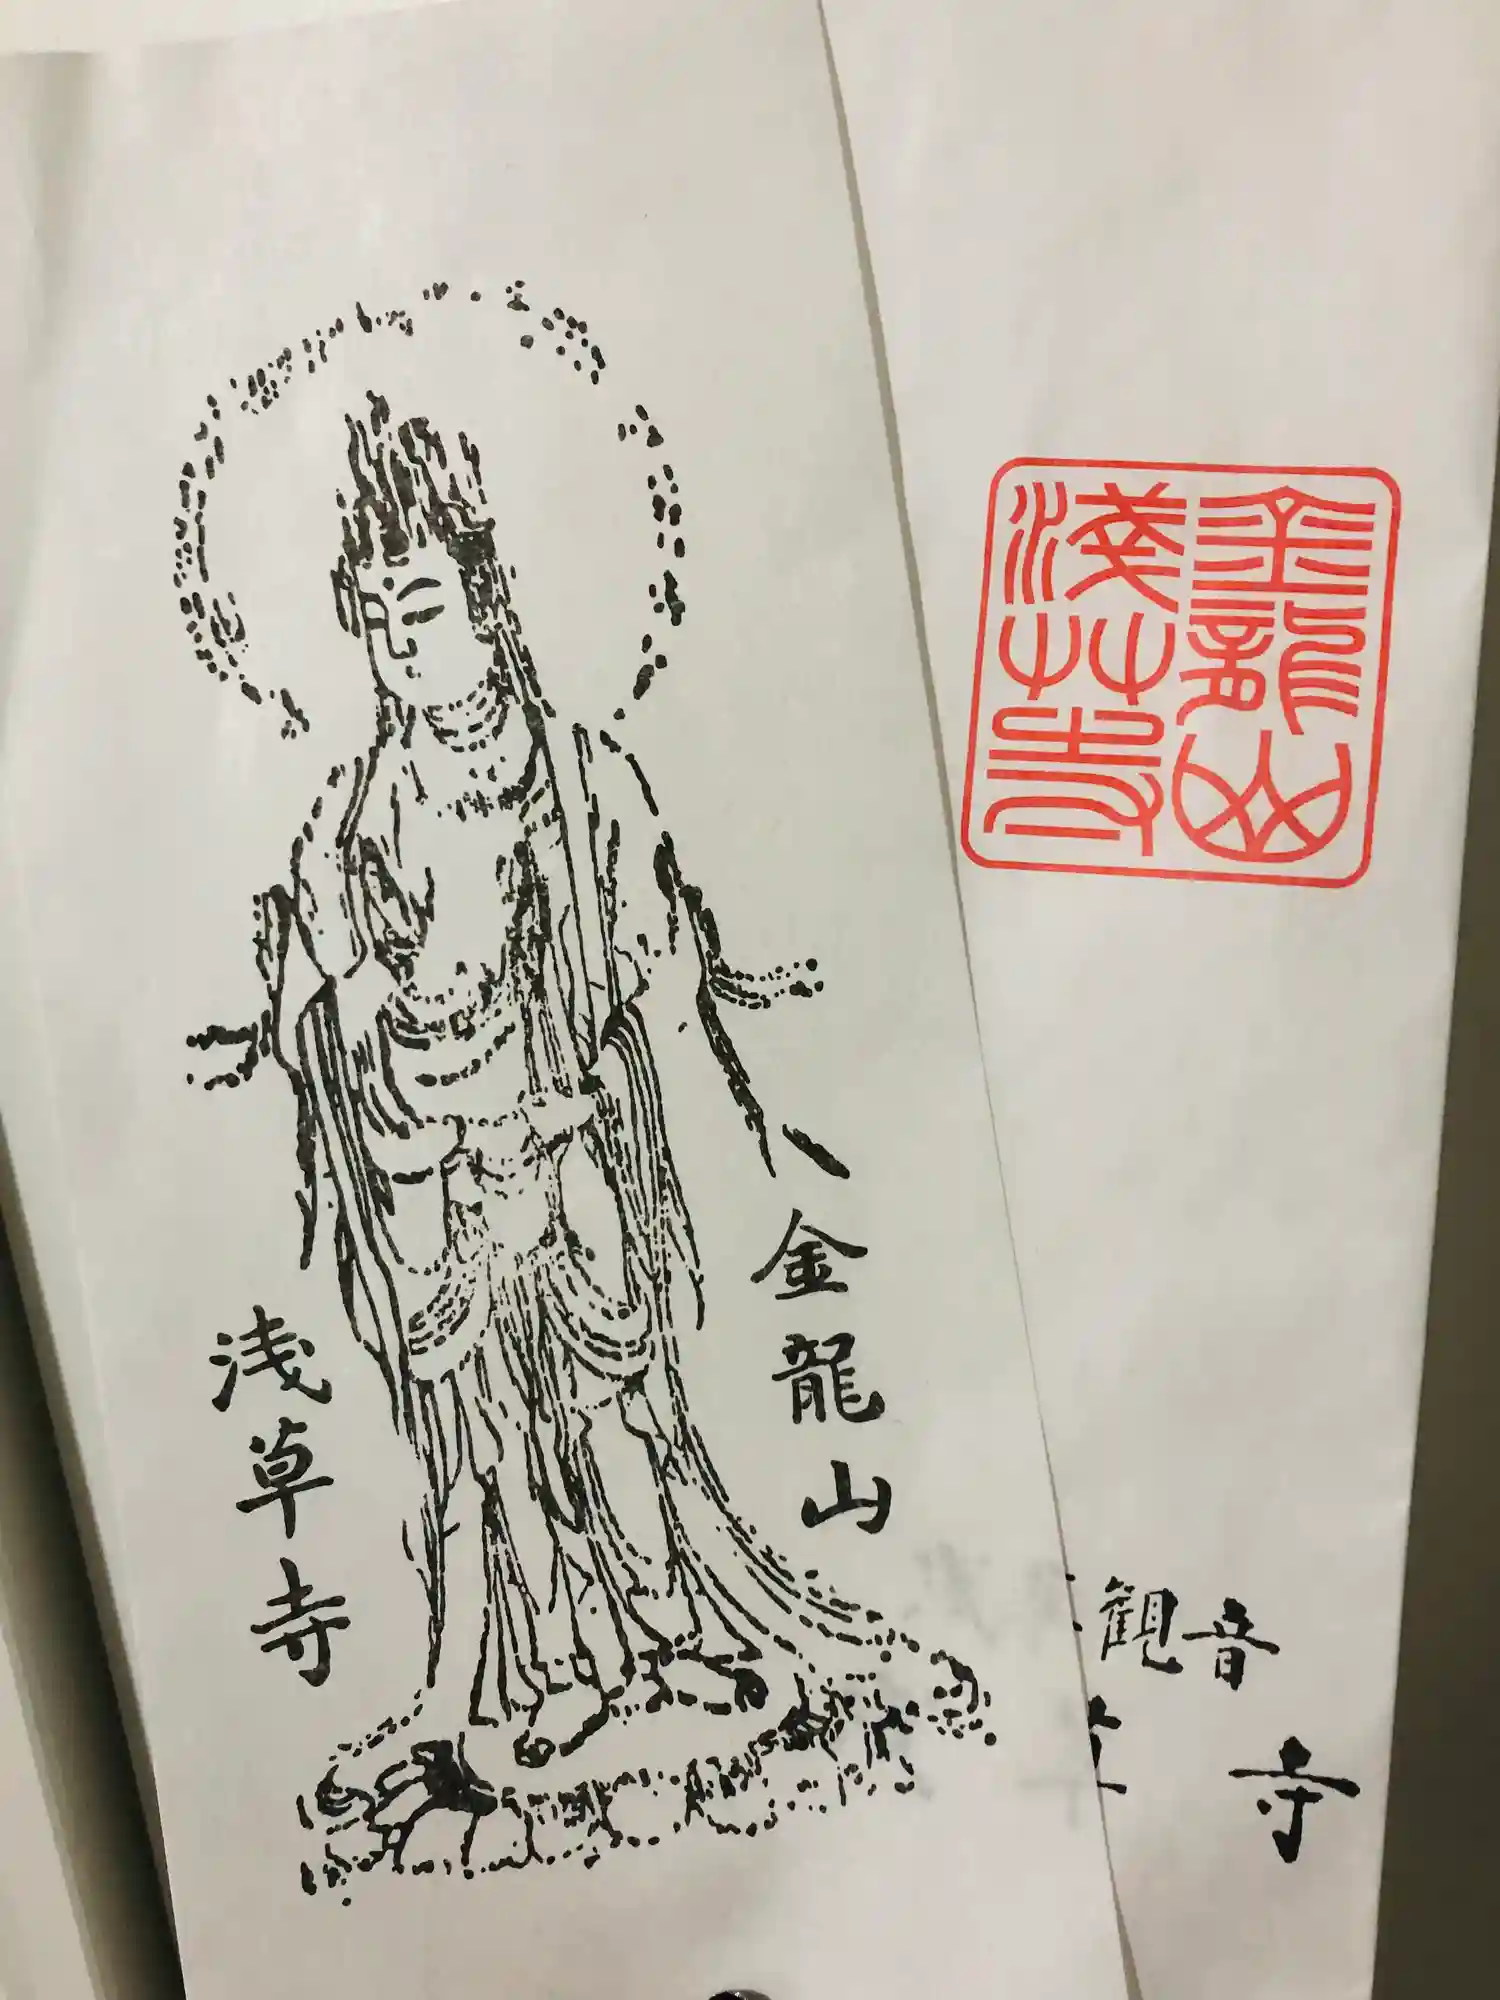 金龍山
浅草寺
金龍山
淺艸寺
観音
寺